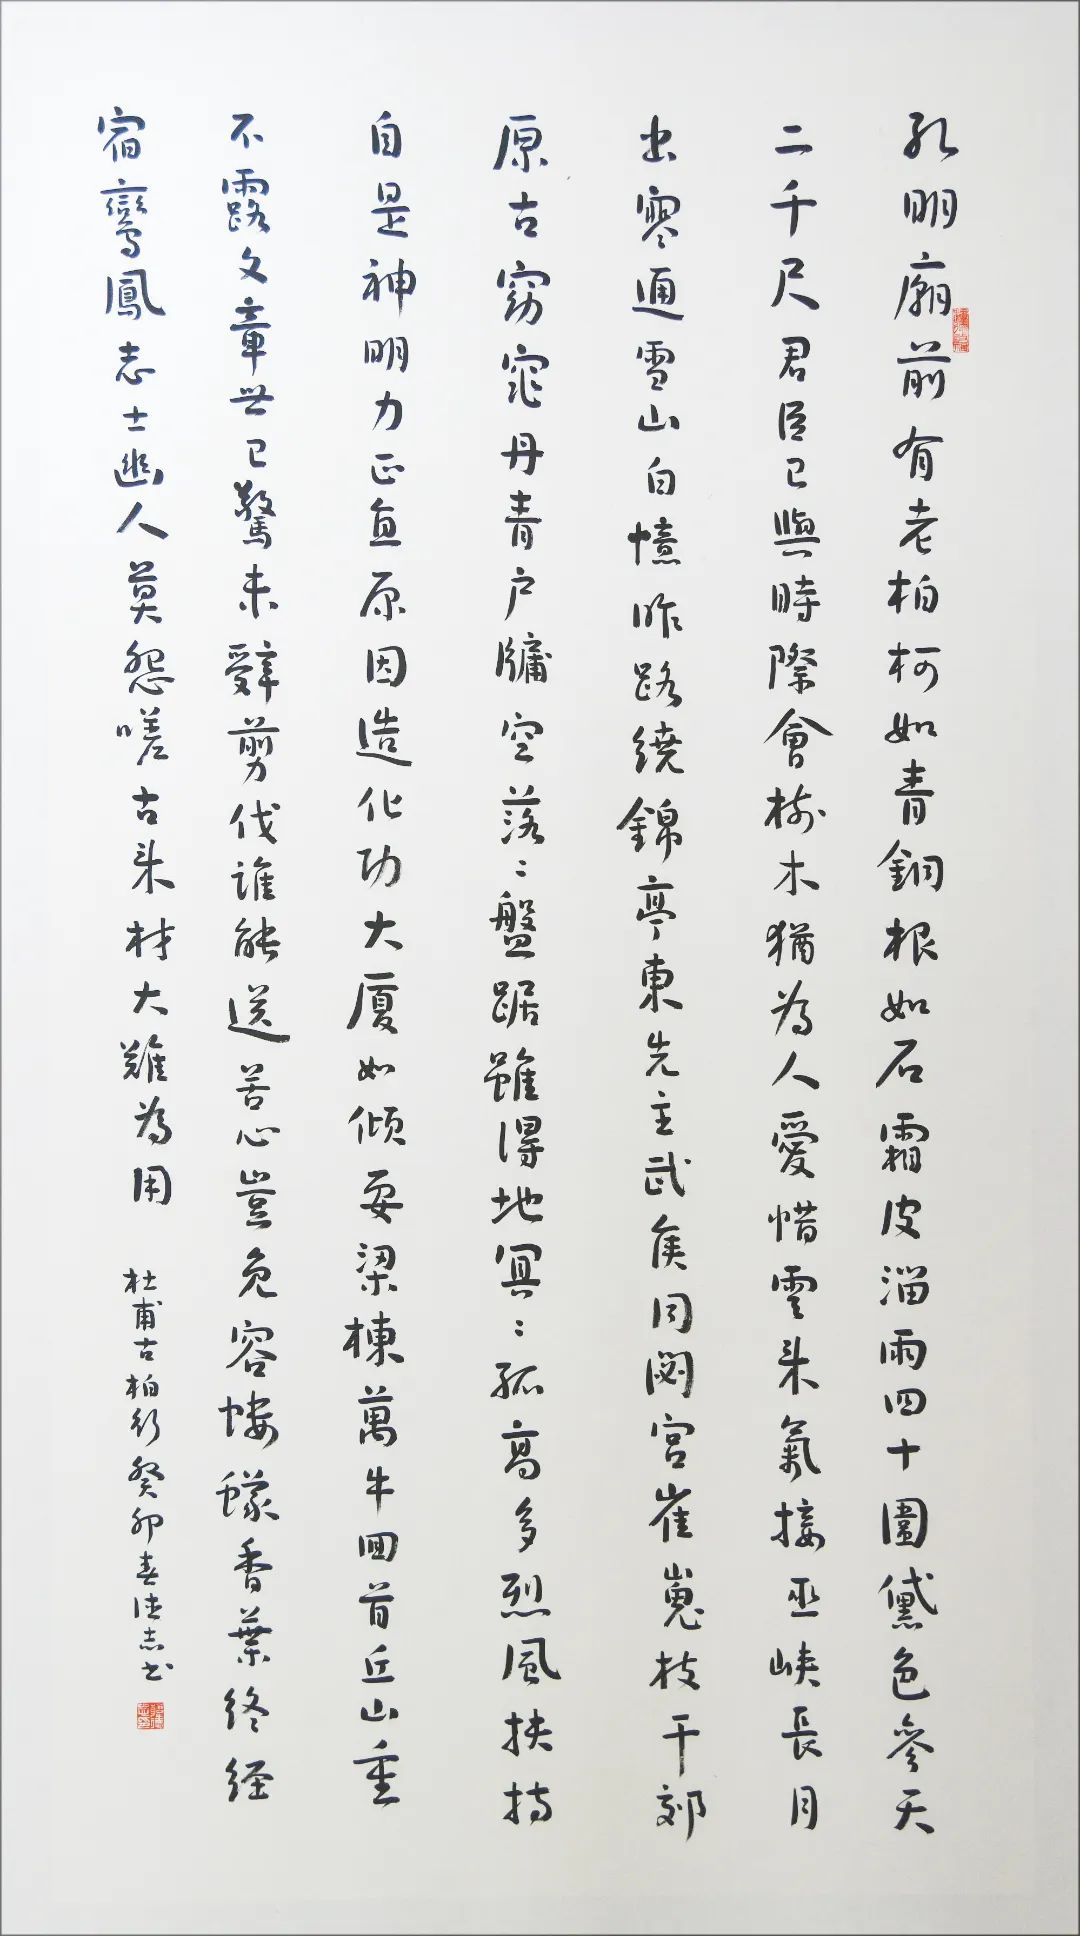 孔明廟前有老柏柯如青銅根如石霜皮溜雨四十圍黛色參天
二千尺君臣已與時際會樹木猶為人愛惜雲来氣接巫峽長月
出寒通雪山白憶昨路繞錦亭東先主武侯同閟宮崔嵬枝干郊
原古窈窕丹青户牖空落〻盤踞雖得地冥〻孤高多烈風扶持
自是神明力正直原因造化功大廈如傾要梁棟萬牛回首丘山重
不露文章世已驚未辭剪伐誰能送苦心豈免容螻蟻香葉終經
宿鸞鳳志士幽人莫怨嗟古来材大難為用
杜甫古柏行癸卯春德志书